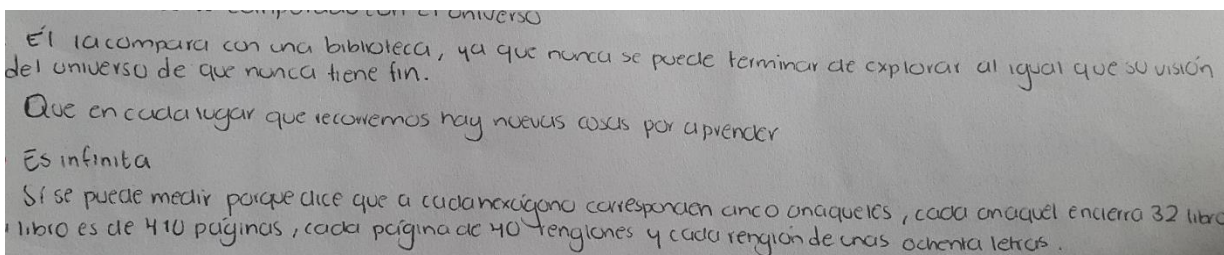 comparado con el universo
Él la compara con una biblioteca, ya que nunca se puede terminar de explorar al igual que su visión
del universo de que nunca tiene fin.
Que en cada lugar que recorremos hay nuevas cosas por aprender
Es infinita
Sí se puede medir porque dice que a cada hexágono corresponden cinco anaqueles, cada anaquel encierra 32 libro
libro es de 410 páginas, cada página de 40 renglones y cada renglón de unas ochenta letras.